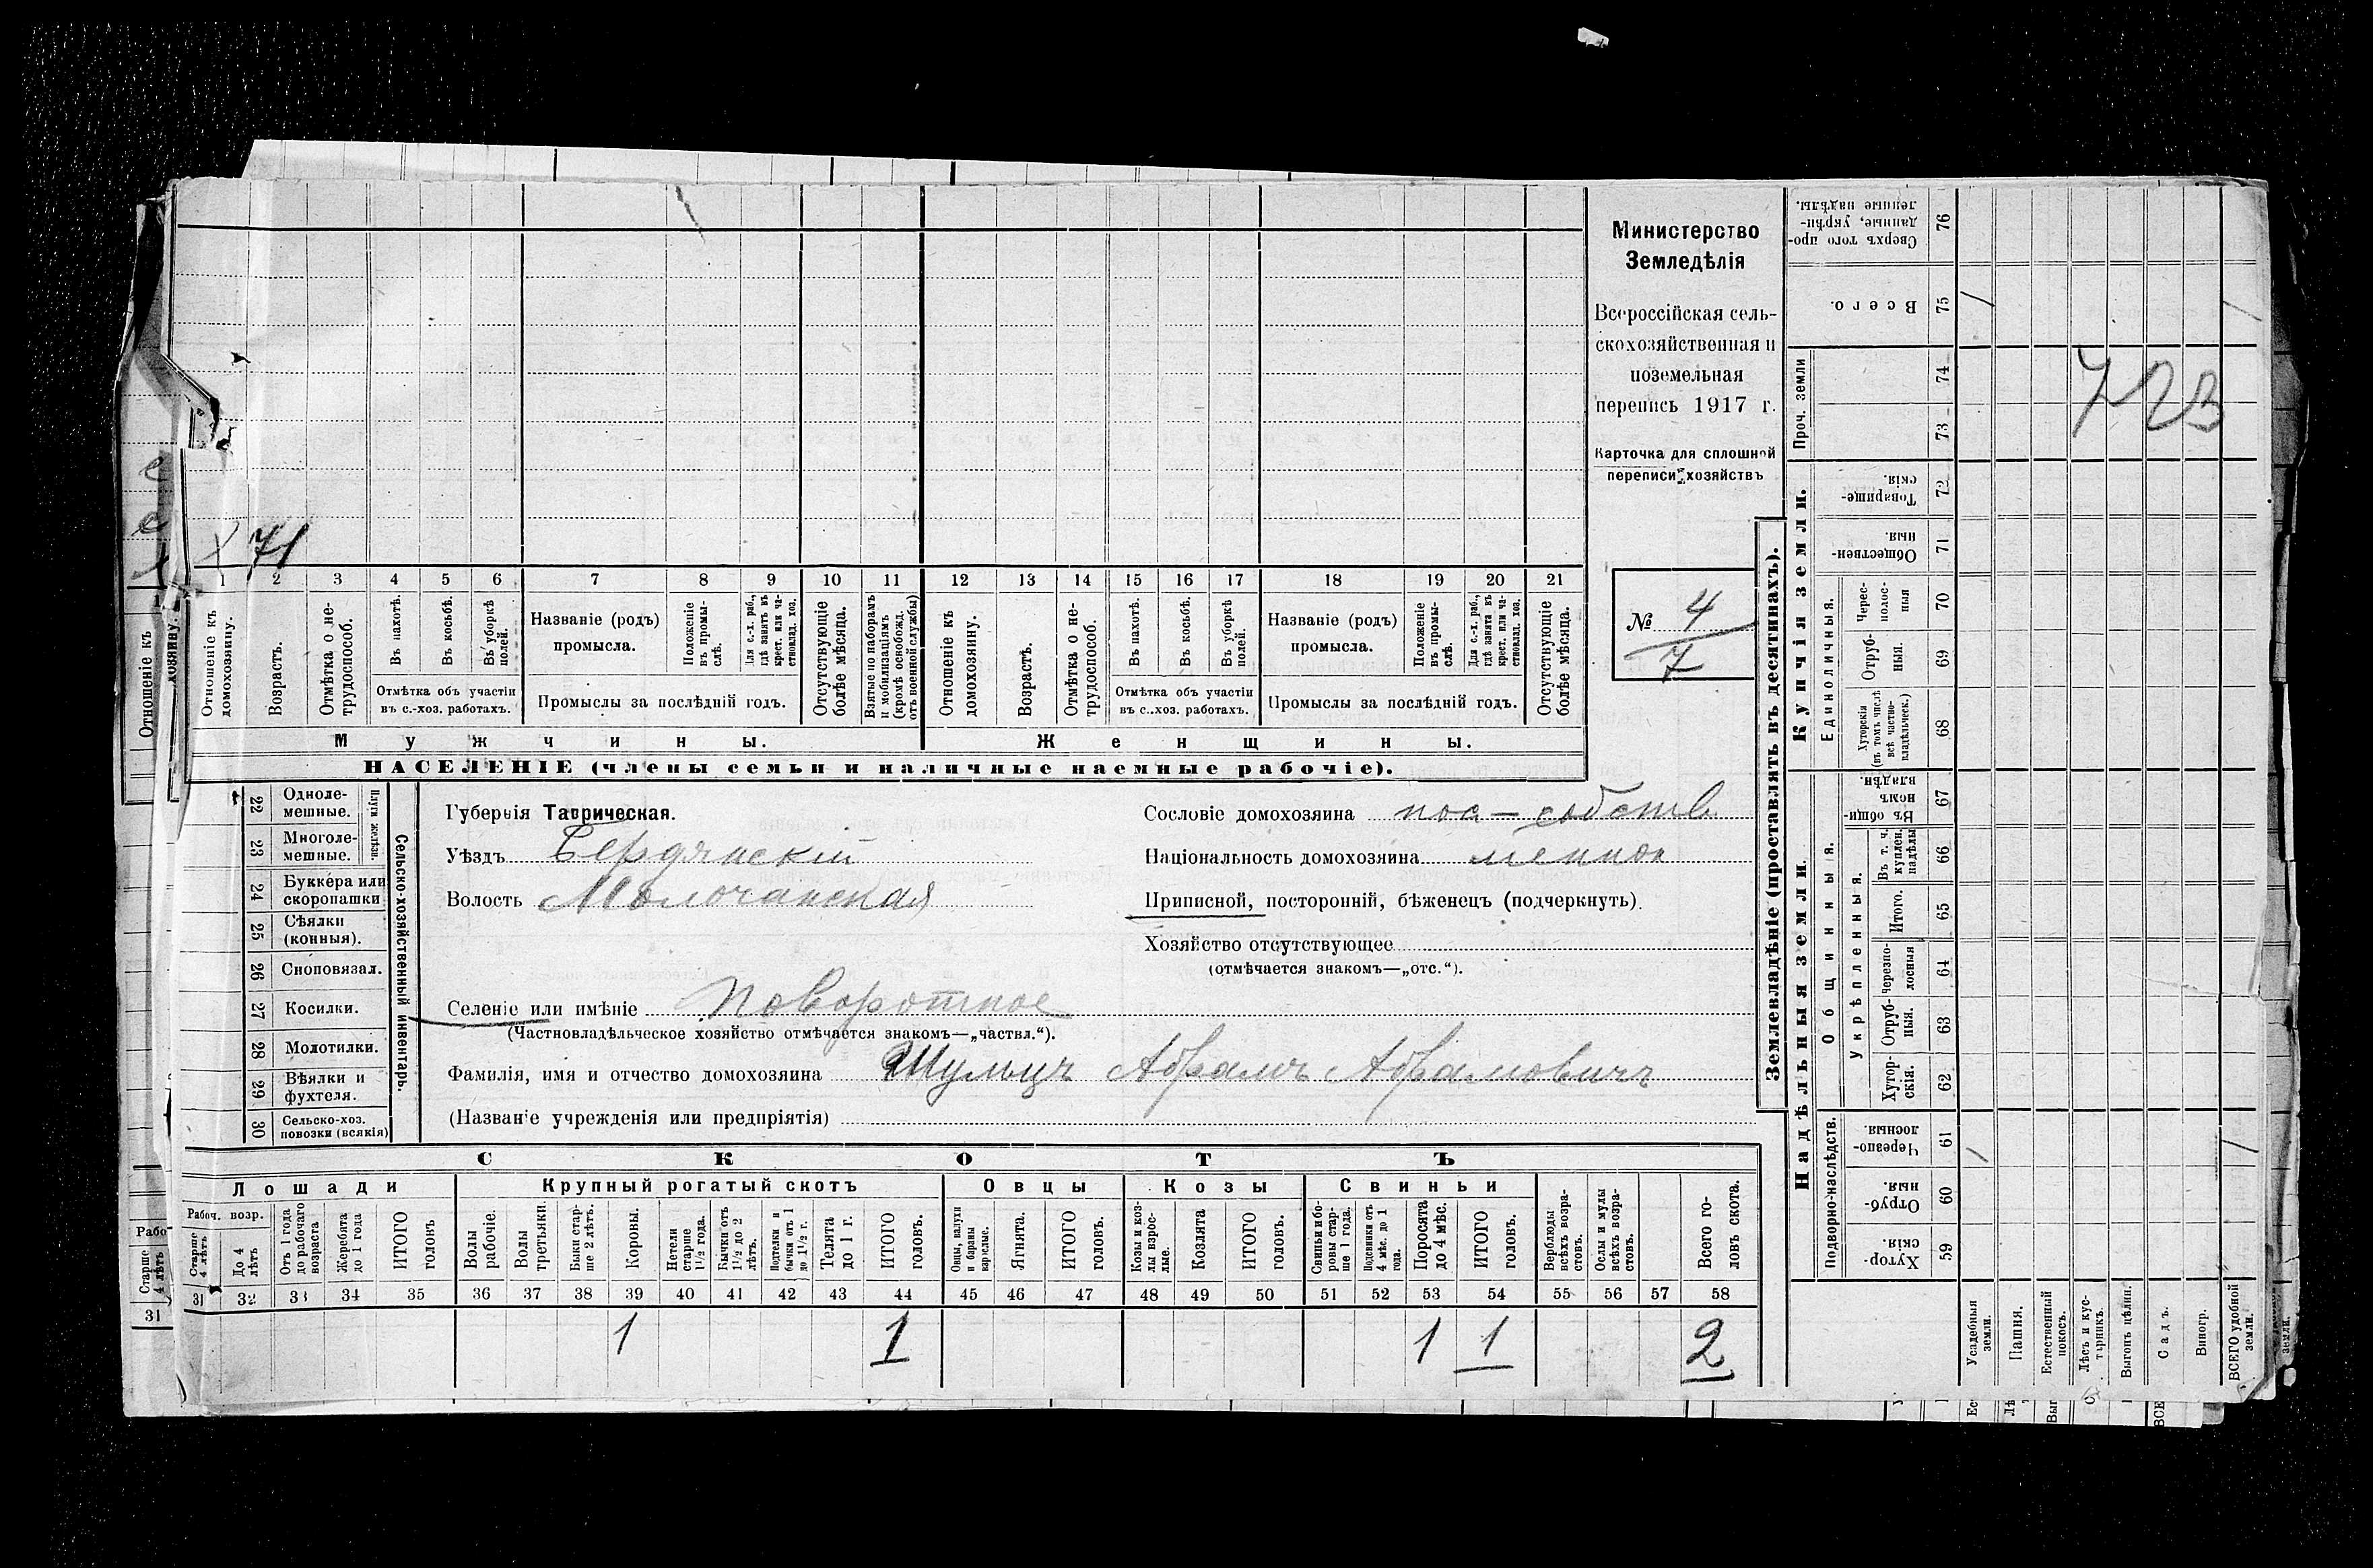 Министерство
Земледѣлія
Всероссійская сель-
скохозяйственная и
поземельная
перепись 1917 г.
Карточка для сплошной
переписи хозяйствъ
№ 4
7
71
1 2 3 4 5 6 7 8 9 10 11 12 13 14 15 16 17 18 19 20 21
Отношеніе къ домохозяину.
Возрастъ.
Отмѣтка о не-трудоспособ.
Въ пахотѣ.
Въ косьбѣ.
Въ уборкѣ полей.
Отмѣтка объ участіи
въ с.-хоз. работахъ.
Названіе (родъ)
промысла.
Положеніе въ промы-слѣ.
Для с.-х. раб., гдѣ занятъ въ крест. или ча-стновлад. хоз.
Промыслы за послѣдній годъ.
Отсутствующіе болѣе мѣсяца.
Взятые по наборамъ и мобилизаціямъ (кромѣ освобожд. отъ военной службы)
Отношеніе къ домохозяину.
Возрастъ.
Отмѣтка о не-трудоспособ.
Въ пахотѣ.
Въ косьбѣ.
Въ уборкѣ полей.
Отмѣтка объ участіи
въ с.-хоз. работахъ.
Названіе (родъ)
промысла.
Положеніе въ промы-слѣ.
Для с.-х. раб., гдѣ занята въ крест. или ча-стновлад. хоз.
Промыслы за послѣдній годъ.
Отсутствующіе болѣе мѣсяца.
Мужчины. Женщины.
НАСЕЛЕНІЕ (члены семьи и наличные наемные рабочіе).
22 Одноле-мешные.
23 Многоле-мешные.
Плуги желѣзн.
24 Буккера или скоропашки
25 Сѣялки (конныя).
26 Сноповязал.
27 Косилки.
28 Молотилки.
29 Вѣялки и фухтеля.
30 Сельско-хоз. повозки (всякія)
Сельско-хозяйственный инвентарь.
Губернія Таврическая.
Уѣздъ Бердянскій
Волость Молочанская
Селеніе или имѣніе Поворотное
(Частновладѣльческое хозяйство отмѣчается знакомъ—„частвл.“).
Фамилія, имя и отчество домохозяина Шульцъ Абрамъ Абрамовичъ
(Названіе учрежденія или предпріятія)
Сословіе домохозяина пос — собств
Національность домохозяина меннон
Приписной, посторонній, бѣженецъ (подчеркнуть).
Хозяйство отсутствующее
(отмѣчается знакомъ—„отс.“).
СКОТЪ
Лошади Крупный рогатый скотъ Овцы Козы Свиньи
Рабоч. возр.
Старше 4 лѣтъ
До 4 лѣтъ
Отъ 1 года до рабочаго возраста
Жеребята до 1 года
ИТОГО головъ
Волы рабочіе.
Волы третьяки.
Быки стар-ше 2 лѣтъ.
Коровы.
Нетели старше 1½ года.
Бычки отъ 1½ до 2 лѣтъ.
Подтелки и бычки отъ 1 до 1½ г.
Телята до 1 г.
ИТОГО головъ.
Овцы, валухи и бараны взрослые.
Ягнята.
ИТОГО головъ.
Козы и коз-лы взрос-лые.
Козлята
ИТОГО головъ.
Свиньи и бо-ровы стар-ше 1 года.
Подсвинки отъ 4 мѣс. до 1 года.
Поросята до 4 мѣс.
ИТОГО головъ.
Верблюды всѣхъ возра-стовъ.
Ослы и мулы всѣхъ возра-стовъ.
Всего го-ловъ скота.
31 32 33 34 35 36 37 38 39 40 41 42 43 44 45 46 47 48 49 50 51 52 53 54 55 56 57 58
1 1 1 1 2
Землевладѣніе (проставлять въ десятинахъ).
Купчія земли.
Надѣльныя земли.
76 Сверхъ того про-данные, укрѣп-ленные надѣлы.
75 Всего.
Проч. земли
74
73
723
72 Товарище-скія.
71 Обществен-ныя.
Единоличныя.
70 Черес-полос-ныя
69 Отруб-ныя.
68 Хуторскія (въ томъ числѣ всѣ частно-владѣльческ.)
67 Въ общин-номъ владѣн.
Общинныя.
Укрѣпленныя.
66 Въ т. ч. куплен. надѣлы
65 Итого.
64 Черезпо-лосныя
63 Отруб-ныя.
62 Хутор-скія.
Подворно-наслѣдств.
61 Черезпо-лосныя
60 Отруб-ныя.
59 Хутор-скія.
Усадебныя земли.
Пашня.
Естественный покосъ.
Лѣсъ и кус-тарникъ.
Выгонъ цѣлин.
Садъ.
Виногр.
ВСЕГО удобной земли.
Отношеніе къ
Рабо
Старше 4 лѣтъ
31